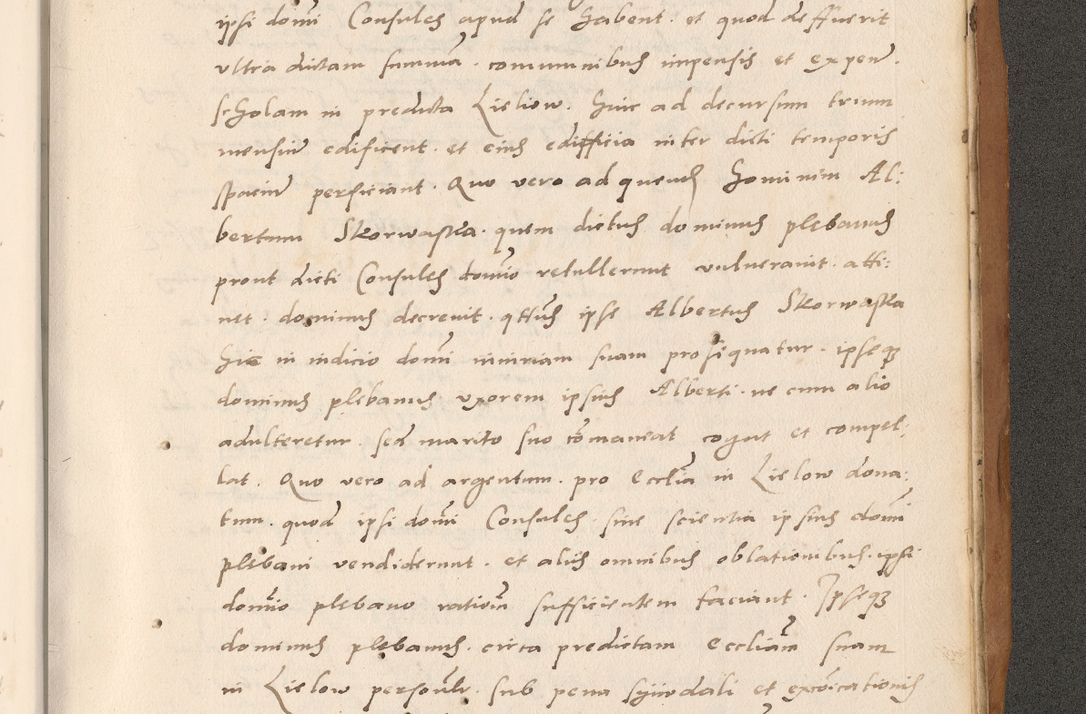 ipsi domi Consules apud se habent. et quod deffuerit
ultra dictam summa. communibus impensis et expen.
scholam in predicta Lielow. hinc ad decursum trium
mensiu edificent. et eius edifficia inter dicti temporis
spaciu perficiant. Quo vero ad hominem Al:
bertum Skorwaska. quem dictus dominus plebanus
prout dicti Consules domio retullerunt vulneravit. atti:
net. dominus decrevit. ipse Albertus Skorwaska
hic in iudicio domi iniuriam suam prosequatur. ipseqz
dominus plebanus uxorem ipsius Alberti. ne cum alio
adulteretur. sed marito suo comaneat cogat et compel:
lat. Quo vero ad argentum. pro Ecclia in Lielow dona:
tum. quod ipsi domi Consules. sine scientia ipsius domi
plebani vendiderunt. et aliis omnibus oblationibus. ipsi
domio plebano rationem sufficientem faciant. Ipseqz
dominus plebanus. circa predictam Eccliam suam
in Lielow personlr. sub pena synodali et excoicationis